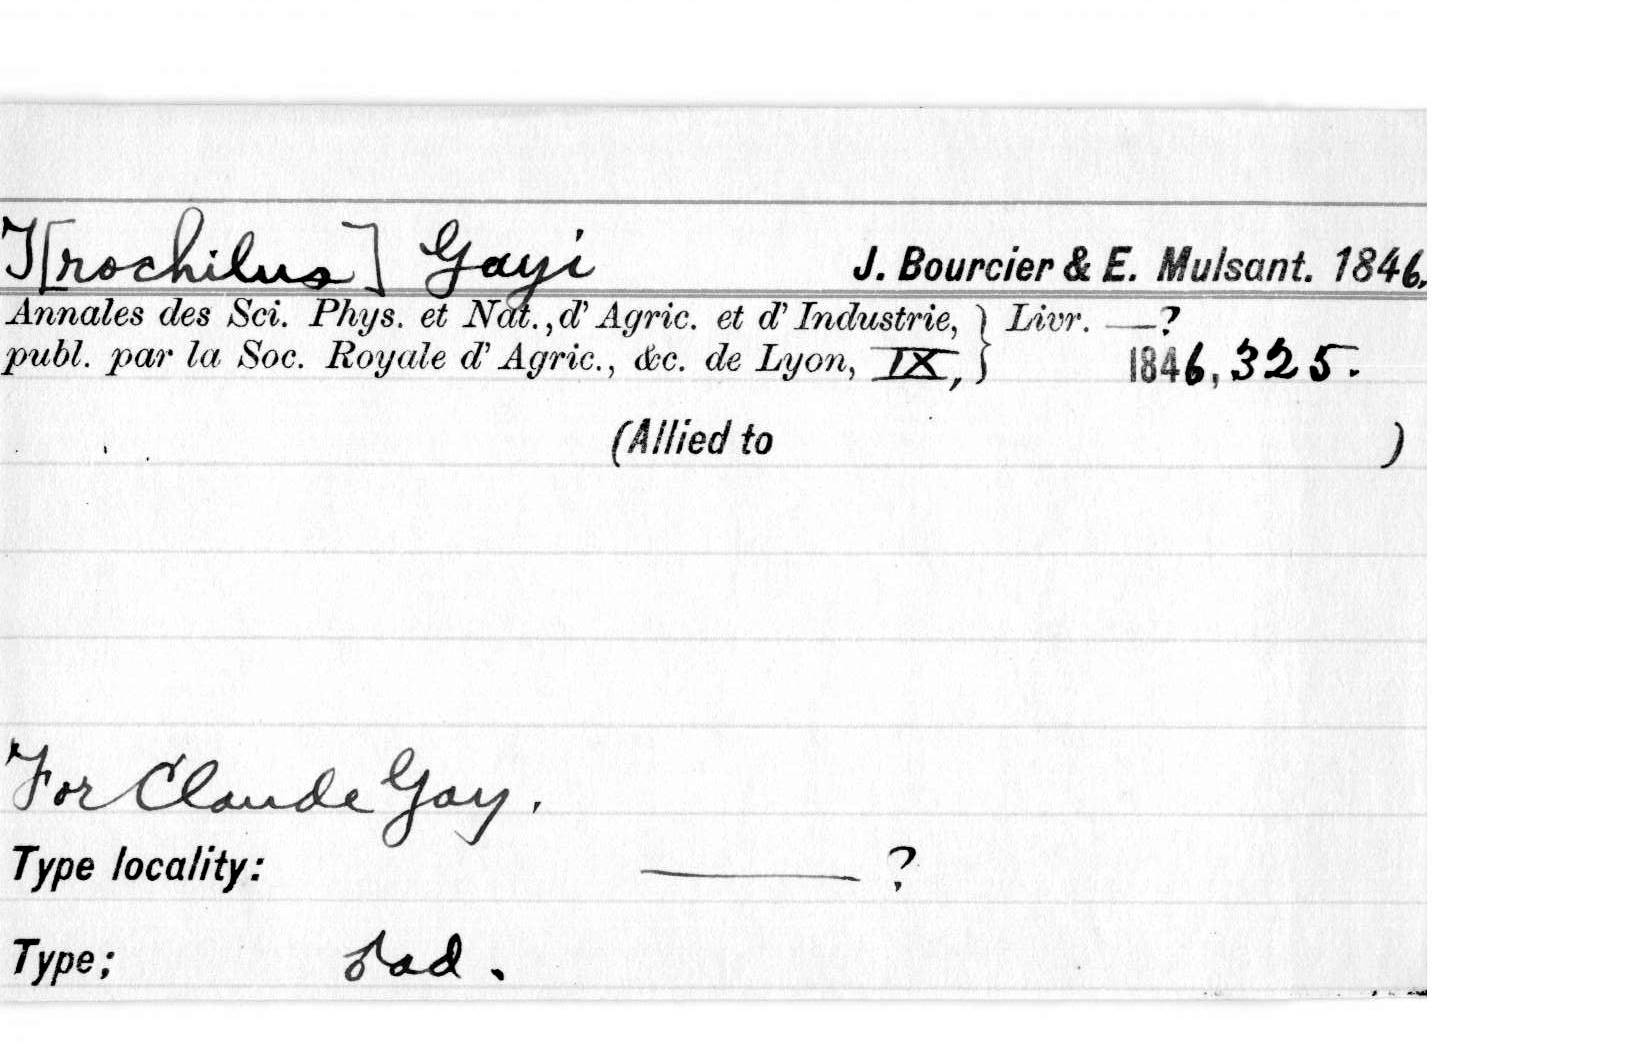 T[rochilus] Gayi J. Bourcier & E. Mulsant. 1846.
Annales des Sci. Phys. et Nat., d' Agric. et d' Industrie, } Livr. —?
publ. par la Soc. Royale d' Agric., &c. de Lyon, IX, } 1846, 325.
(Allied to )
For Claude Gay.
Type locality: ——— ?
Type;